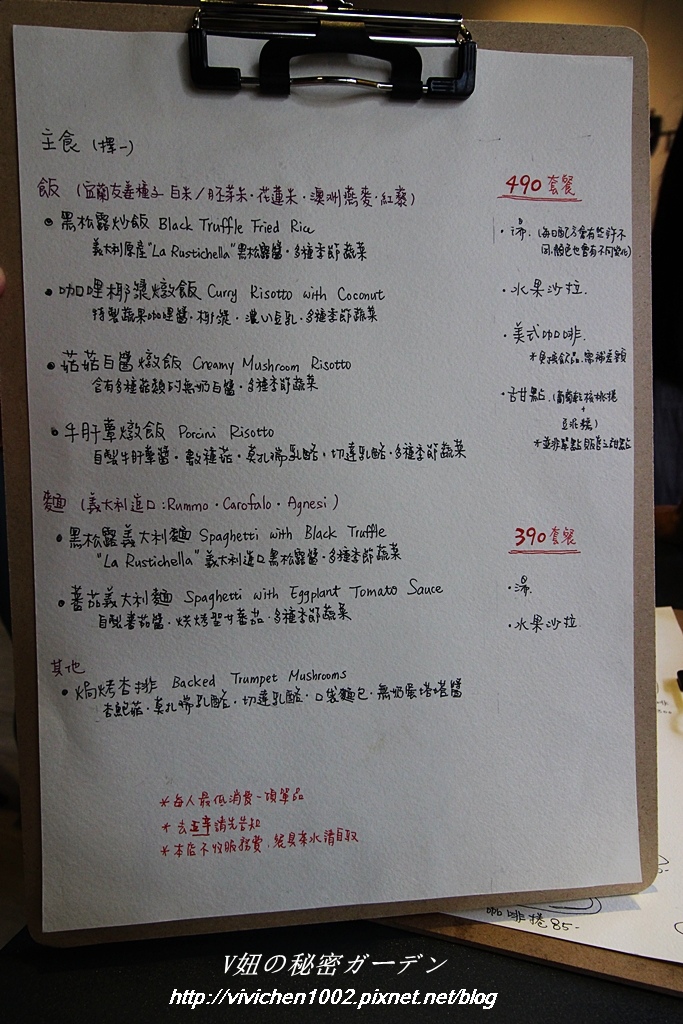 主食 (擇一)
飯 (宜蘭友善種子白米/胚芽米·花蓮米·澳洲燕麥·紅藜)
• 黑松露炒飯 Black Truffle Fried Rice
義大利原產"La Rustichella"黑松露醬·多種季節蔬菜
• 咖哩椰漿燉飯 Curry Risotto with Coconut
特製蔬果咖哩醬·椰漿·濃い豆乳·多種季節蔬菜
• 菇菇白醬燉飯 Creamy Mushroom Risotto
含有多種菇類的無奶白醬·多種季節蔬菜
• 牛肝蕈燉飯 Porcini Risotto
自製牛肝蕈醬·數種菇·莫扎瑞乳酪·切達乳酪·多種季節蔬菜
麵 (義大利進口:Rummo·Carofalo·Agnesi)
• 黑松露義大利麵 Spaghetti with Black Truffle
"La Rustichella"義大利進口黑松露醬·多種季節蔬菜
• 蕃茄義大利麵 Spaghetti with Eggplant Tomato Sauce
自製蕃茄醬·烘烤聖女蕃茄·多種季節蔬菜
其他
• 焗烤杏排 Backed Trumpet Mushrooms
杏鮑菇·莫扎瑞乳酪·切達乳酪·口袋麵包·無奶蛋塔塔醬
490 套餐
·湯 (每日配方會有些許不
同,顏色也會有不同變化)
·水果沙拉
·美式咖啡
*兌換飲品,需補差額
·古甘點 (葡萄乾核桃捲
+
豆乖糕)
*並非單點販售之甜點
390 套餐
·湯
·水果沙拉
*每人最低消費一項單品
*去五辛請先告知
*本店不收服務費,餐具茶水請自取
咖啡捲 85-
V妞の秘密ガーデン
http://vivichen1002.pixnet.net/blog